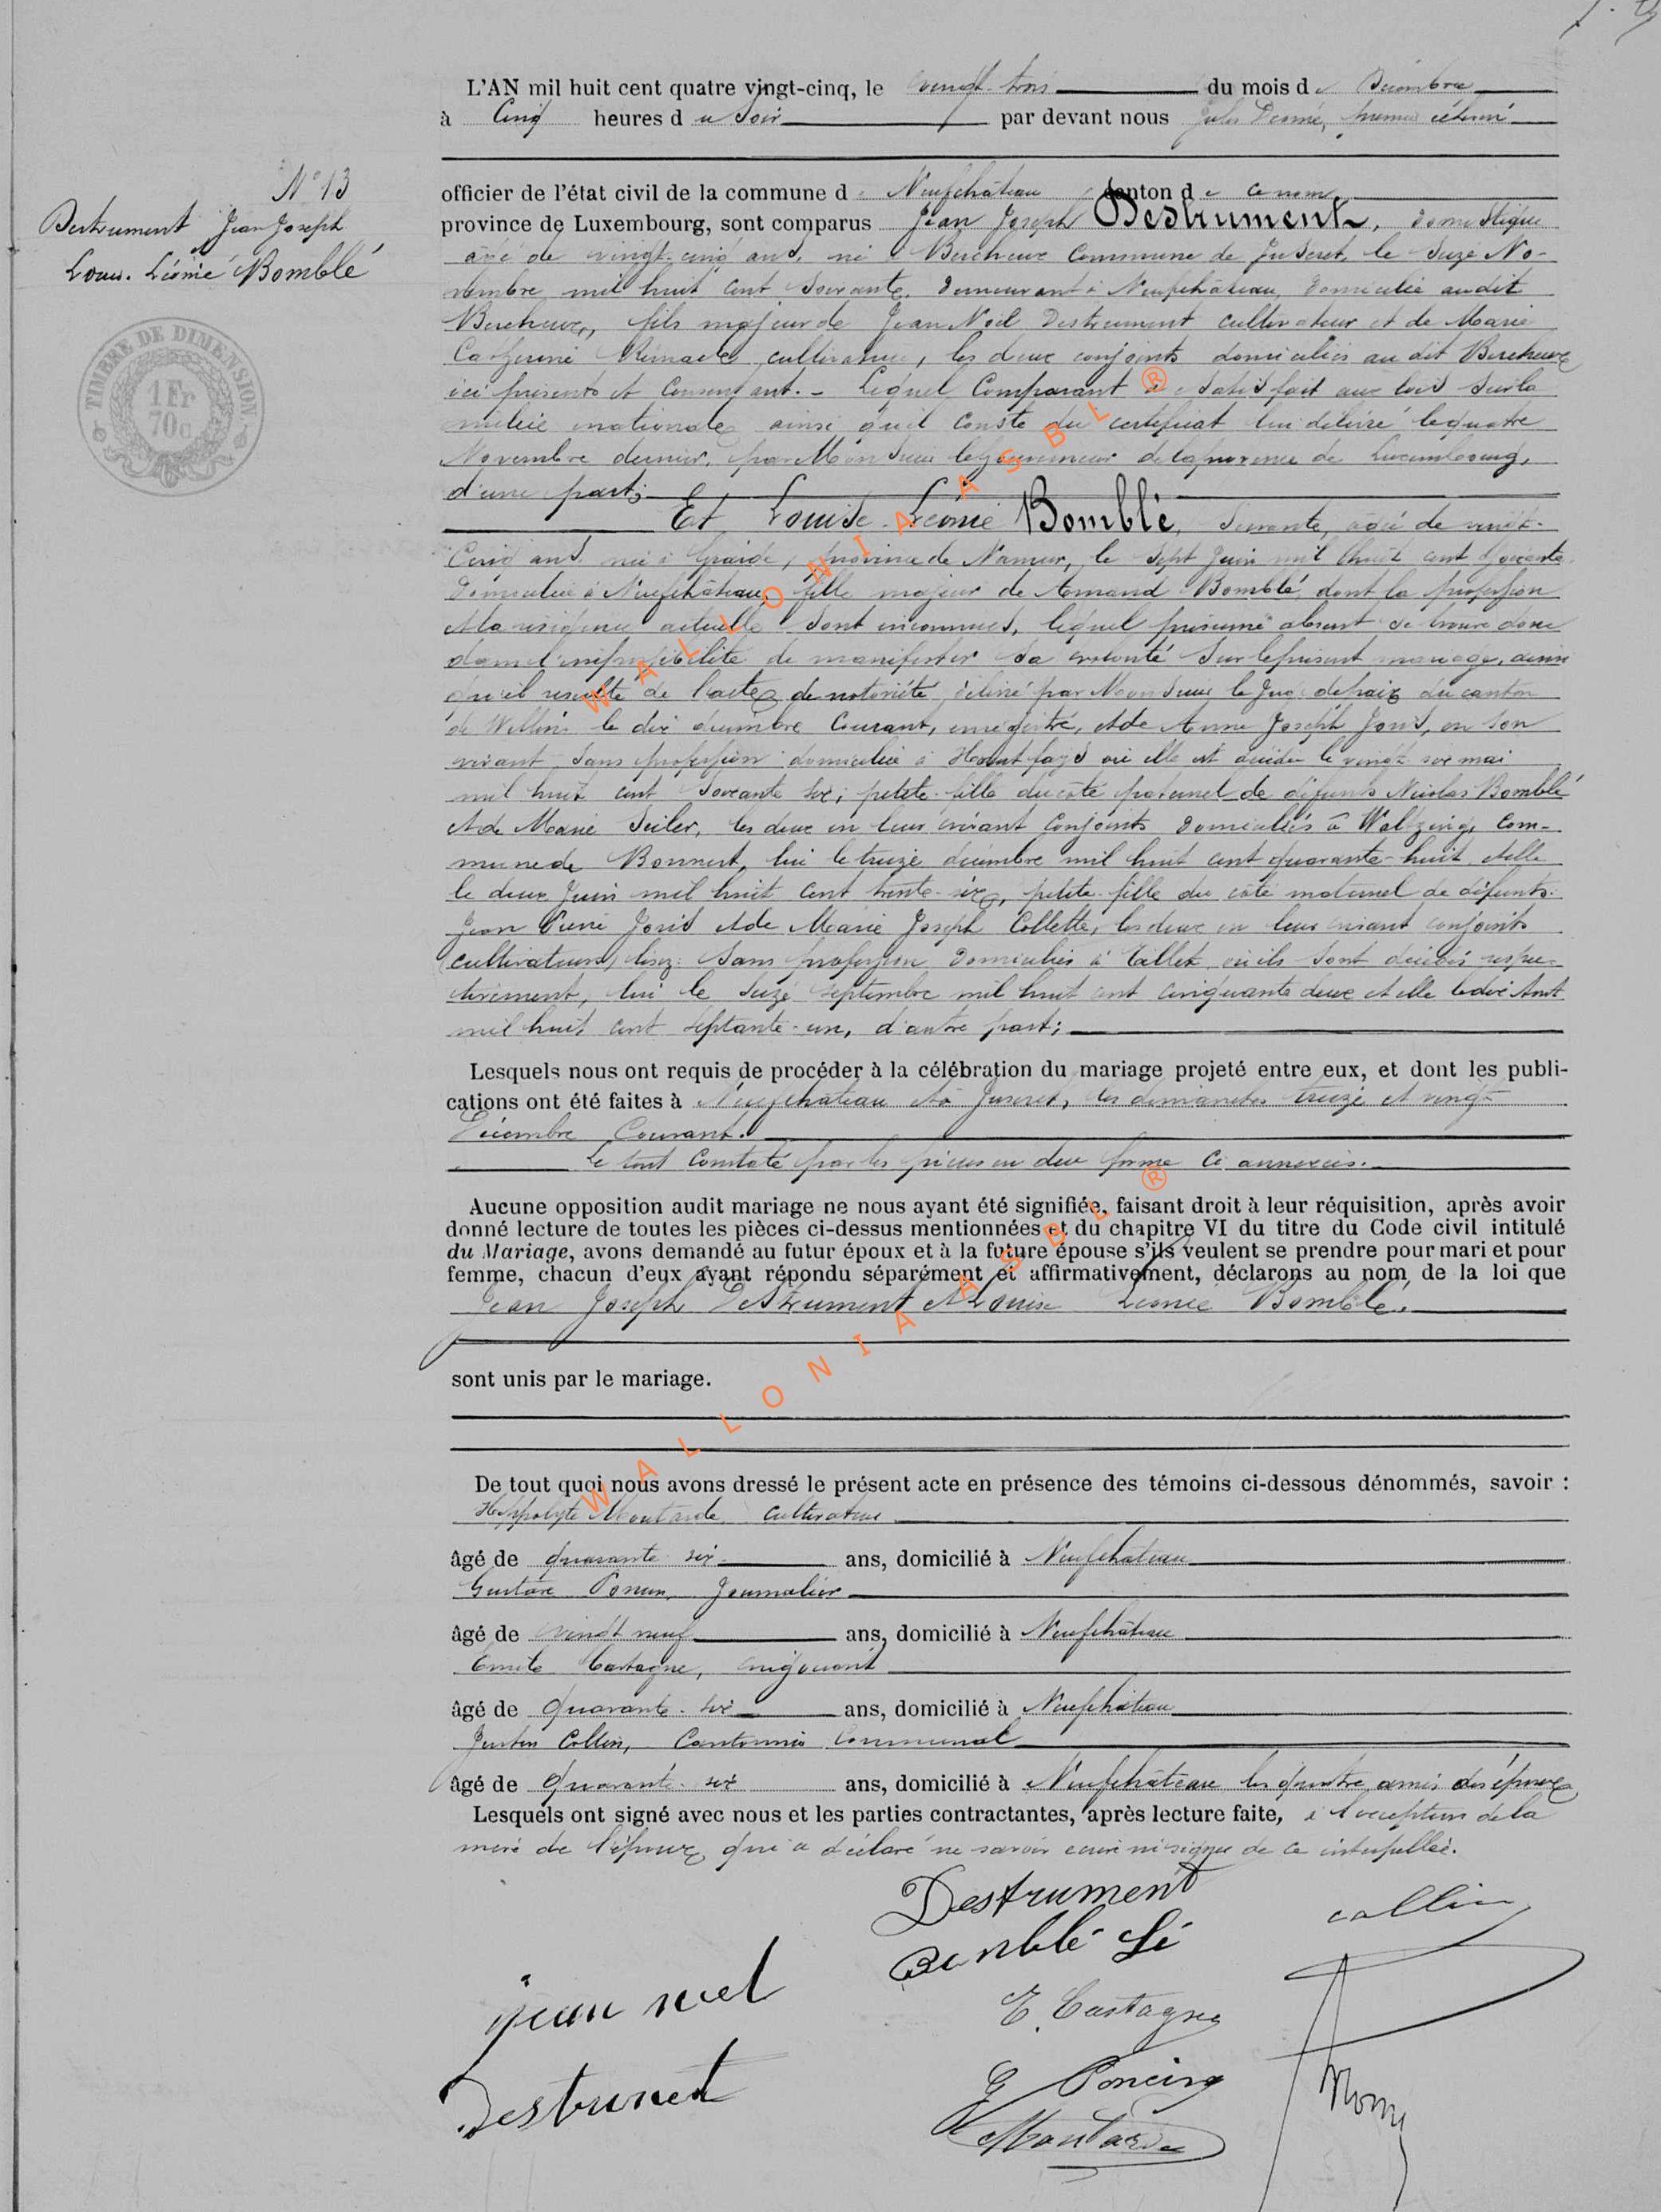 L'AN mil huit cent quatre vingt-cinq, le vingt-trois du mois de Décembre
à Cinq heures du Soir par devant nous Jules premier échevin
N° 13
Destrument Jean Joseph
Louis. Léonie Bomblé
TIMBRE DE DIMENSION
1 Fr
70c
officier de l'état civil de la commune de Neufchâteau canton de ce nom
province de Luxembourg, sont comparus Jean Joseph Destrument, domestique
âgé de vingt-cinq ans, né à Bercheux commune de Juseret, le seize No-
vembre mil huit cent soixante, demeurant à Neufchâteau, domicilié audit
Bercheux, fils majeur de Jean Noël Destrument cultivateur et de Marie
Catherine cultivatrice, les deux conjoints domiciliés au dit Bercheux
ici présents et consentant. - Lequel Comparant a satisfait aux lois sur la
milice nationale ainsi qu'il conste du certificat lui délivré le quatre
Novembre dernier, par Monsieur le gouverneur de la province de Luxembourg,
d'une part;
Et Louise Léonie Bomblé, Servante, âgée de vingt-
Cinq ans née à Graide, province de Namur, le sept Juin mil huit cent soixante,
domiciliée à Neufchâteau, fille majeur de Armand Bomblé, dont la profession
et la résidence actuelle sont inconnues, lequel présumé absent se trouve donc
dans l'impossibilité de manifester sa volonté sur le présent mariage, ainsi
qu'il résulte de l'acte de notoriété délivré par Monsieur le Juge de paix du canton
de Wellin le dix décembre Courant, enregistré, et de Anne Joseph Joris, en son
vivant sans profession domiciliée à Haut fays où elle est décédée le vingt six mai
mil huit cent soixante six; petite-fille du côté paternel de défunts Nicolas Bomblé
et de Marie Seiler, les deux en leur vivant conjoints domiciliés à Waltzing, Com-
mune de Bonnert, lui le treize décembre mil huit cent quarante-huit et elle
le deux Juin mil huit cent trente-six, petite-fille du côté maternel de défunts
Jean Pierre Joris et de Marie Joseph Collette, les deux en leur vivant conjoints
(cultivateurs) lisez: sans profession domiciliés à Tillet où ils sont décédés respec-
tivement, lui le seize septembre mil huit cent cinquante deux et elle le dix Aout
mil huit cent septante-un, d'autre part;
Lesquels nous ont requis de procéder à la célébration du mariage projeté entre eux, et dont les publi-
cations ont été faites à Neufchâteau et à Juseret, les dimanches treize et vingt
Décembre Courant.
Le tout constaté par les pièces en due forme ci annexées.
Aucune opposition audit mariage ne nous ayant été signifiée, faisant droit à leur réquisition, après avoir
donné lecture de toutes les pièces ci-dessus mentionnées et du chapitre VI du titre du Code civil intitulé
du Mariage, avons demandé au futur époux et à la future épouse s'ils veulent se prendre pour mari et pour
femme, chacun d'eux ayant répondu séparément et affirmativement, déclarons au nom de la loi que
Jean Joseph Destrument et Louise Léonie Bomblé.
sont unis par le mariage.
De tout quoi nous avons dressé le présent acte en présence des témoins ci-dessous dénommés, savoir :
Hippolyte Moutarde cultivateur
âgé de quarante six ans, domicilié à Neufchâteau
Gustave Poncin, Journalier
âgé de vingt neuf ans, domicilié à Neufchâteau
Emile Castagne,
âgé de quarante-six ans, domicilié à Neufchâteau
Justin Collin, Cantonnier Communal
âgé de quarante-six ans, domicilié à Neufchâteau les quatre amis des époux
Lesquels ont signé avec nous et les parties contractantes, après lecture faite, à l'exception de la
mère de l'époux qui a déclaré ne savoir écrire ni signer de ce interpellée.
Destrument
Bomblé Lé
collin
jean noel
E. Castagne
Destrument
G Poncin
H Moutarde
WALLONIA ASBL ®
WALLONIA ASBL ®